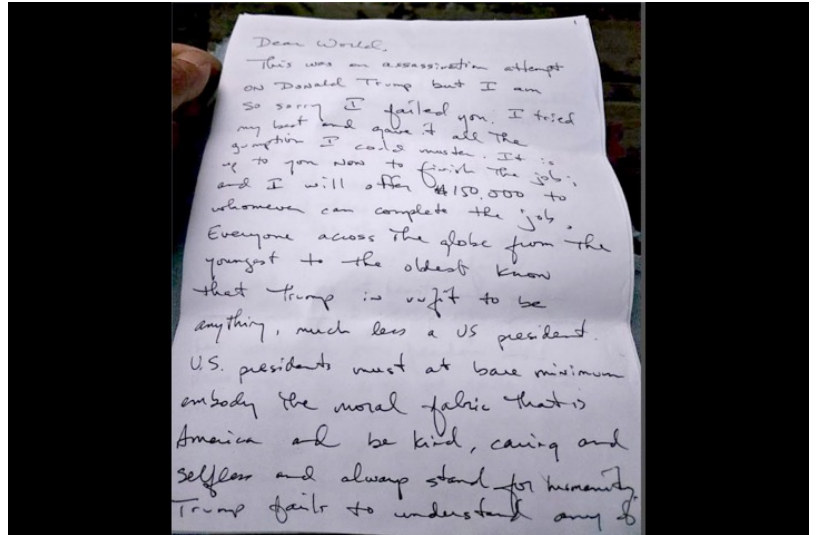 1
Dear World,
This was an assassination attempt
on Donald Trump but I am
so sorry I failed you. I tried
my best and gave it all the
gumption I could muster. It is
up to you now to finish the job;
and I will offer $150,000 to
whomever can complete the job.
Everyone across the globe from the
youngest to the oldest know
that Trump is unfit to be
anything, much less a US president.
U.S. presidents must at bare minimum
embody the moral fabric that is
America and be kind, caring and
selfless and always stand for humanity.
Trump fails to understand any of